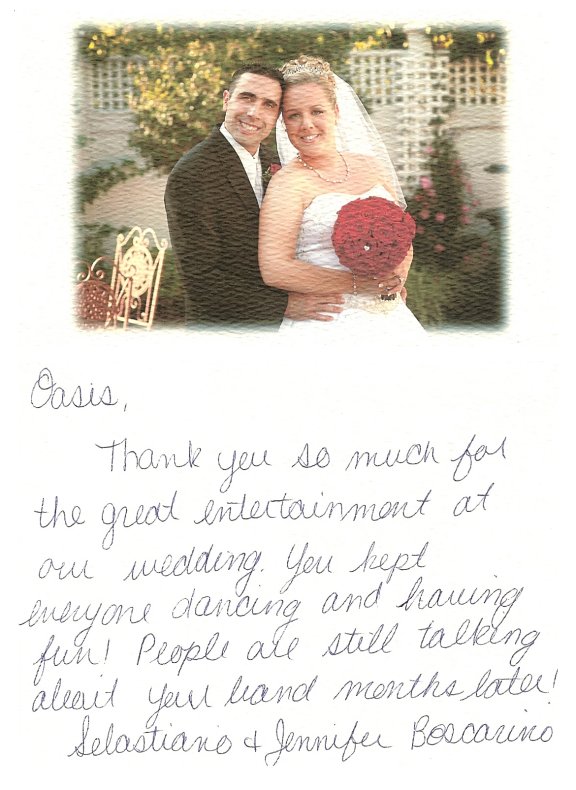 Oasis,
Thank you so much for
the great entertainment at
our wedding. You kept
everyone dancing and having
fun! People are still talking
about your band months later!
Sebastiano & Jennifer Boscarino